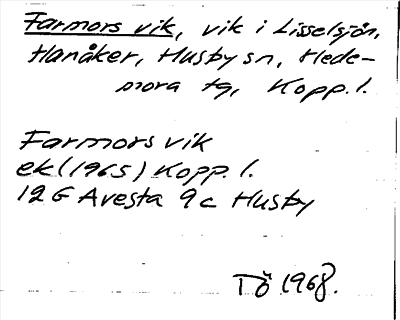 Farmors vik, vik i Lisselsjön,
Hanåker, Husby sn, Hede-
mora tg, Kopp. l.
Farmors vik
ek (1965) Kopp. l.
12G Avesta 9c Husby
Tö 1968.